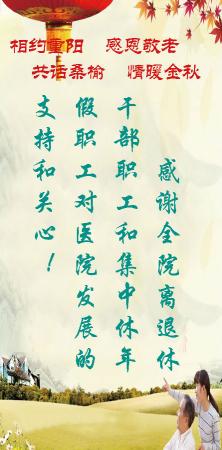 相约重阳 感恩敬老
共话桑榆 情暖金秋
感谢全院离退休
干部职工和集中休年
假职工对医院发展的
支持和关心！